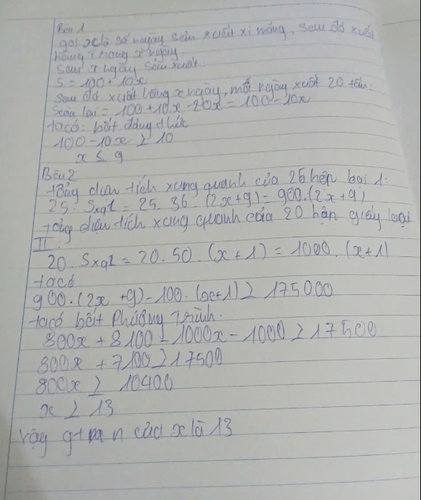 Bài 1
gọi x là số ngày sản xuất xi măng, sau đó xuất
hàng trong x ngày
Sau x ngày sản xuất
S = 100 + 10x
Sau đó xuất trong x ngày, mỗi ngày xuất 20 tấn.
Scòn lại = 100 + 10x - 20x = 100 - 10x
ta có: bất đẳng thức
100 - 10x ≥ 10
x ≤ 9
Bài 2
tổng diện tích xung quanh của 25 hộp loại 1.
25. Sxq1 = 25. 36 (2x+9) = 900. (2x + 9)
tổng diện tích xung quanh của 20 hộp giấy loại
II
20. Sxq2 = 20. 50. (x + 1) = 1000. (x+1)
ta có
900. (2x + 9) - 100. (x+1) ≥ 175000
ta có bất Phương Trình.
800x + 8100 - 1000x - 1000 ≥ 17500
800x + 7100 ≥ 17500
800x ≥ 10400
x ≥ 13
vậy n của x là 13